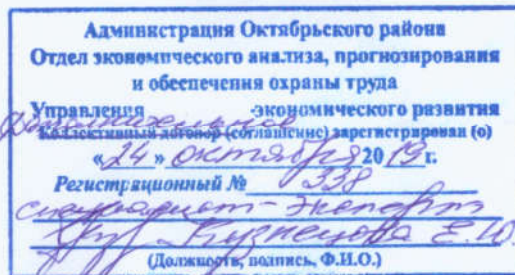 Администрация Октябрьского района
Отдел экономического анализа, прогнозирования
и обеспечения охраны труда
Управления -экономического развития
Коллективный договор (соглашение) зарегистрирован (о)
«24» октября 2019 г.
Регистрационный № 338
специалист-эксперт
Кузнецова Е.Ю.
(Должность, подпись, Ф.И.О.)